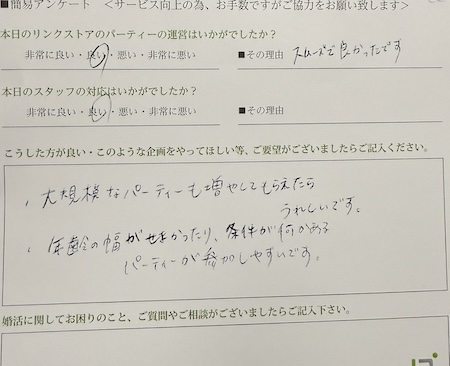 ■簡易アンケート <サービス向上の為、お手数ですがご協力をお願い致します>
本日のリンクストアのパーティーの運営はいかがでしたか?
非常に良い・良い・悪い・非常に悪い ■その理由 スムーズで良かったです
本日のスタッフの対応はいかがでしたか?
非常に良い・良い・悪い・非常に悪い ■その理由
こうした方が良い・このような企画をやってほしい等、ご要望がございましたらご記入ください。
・大規模なパーティーも増やしてもらえたら
うれしいです。
・年齢の幅がせまかったり、条件が何かある
パーティーが参加しやすいです。
婚活に関してお困りのこと、ご質問やご相談がございましたらご記入下さい。